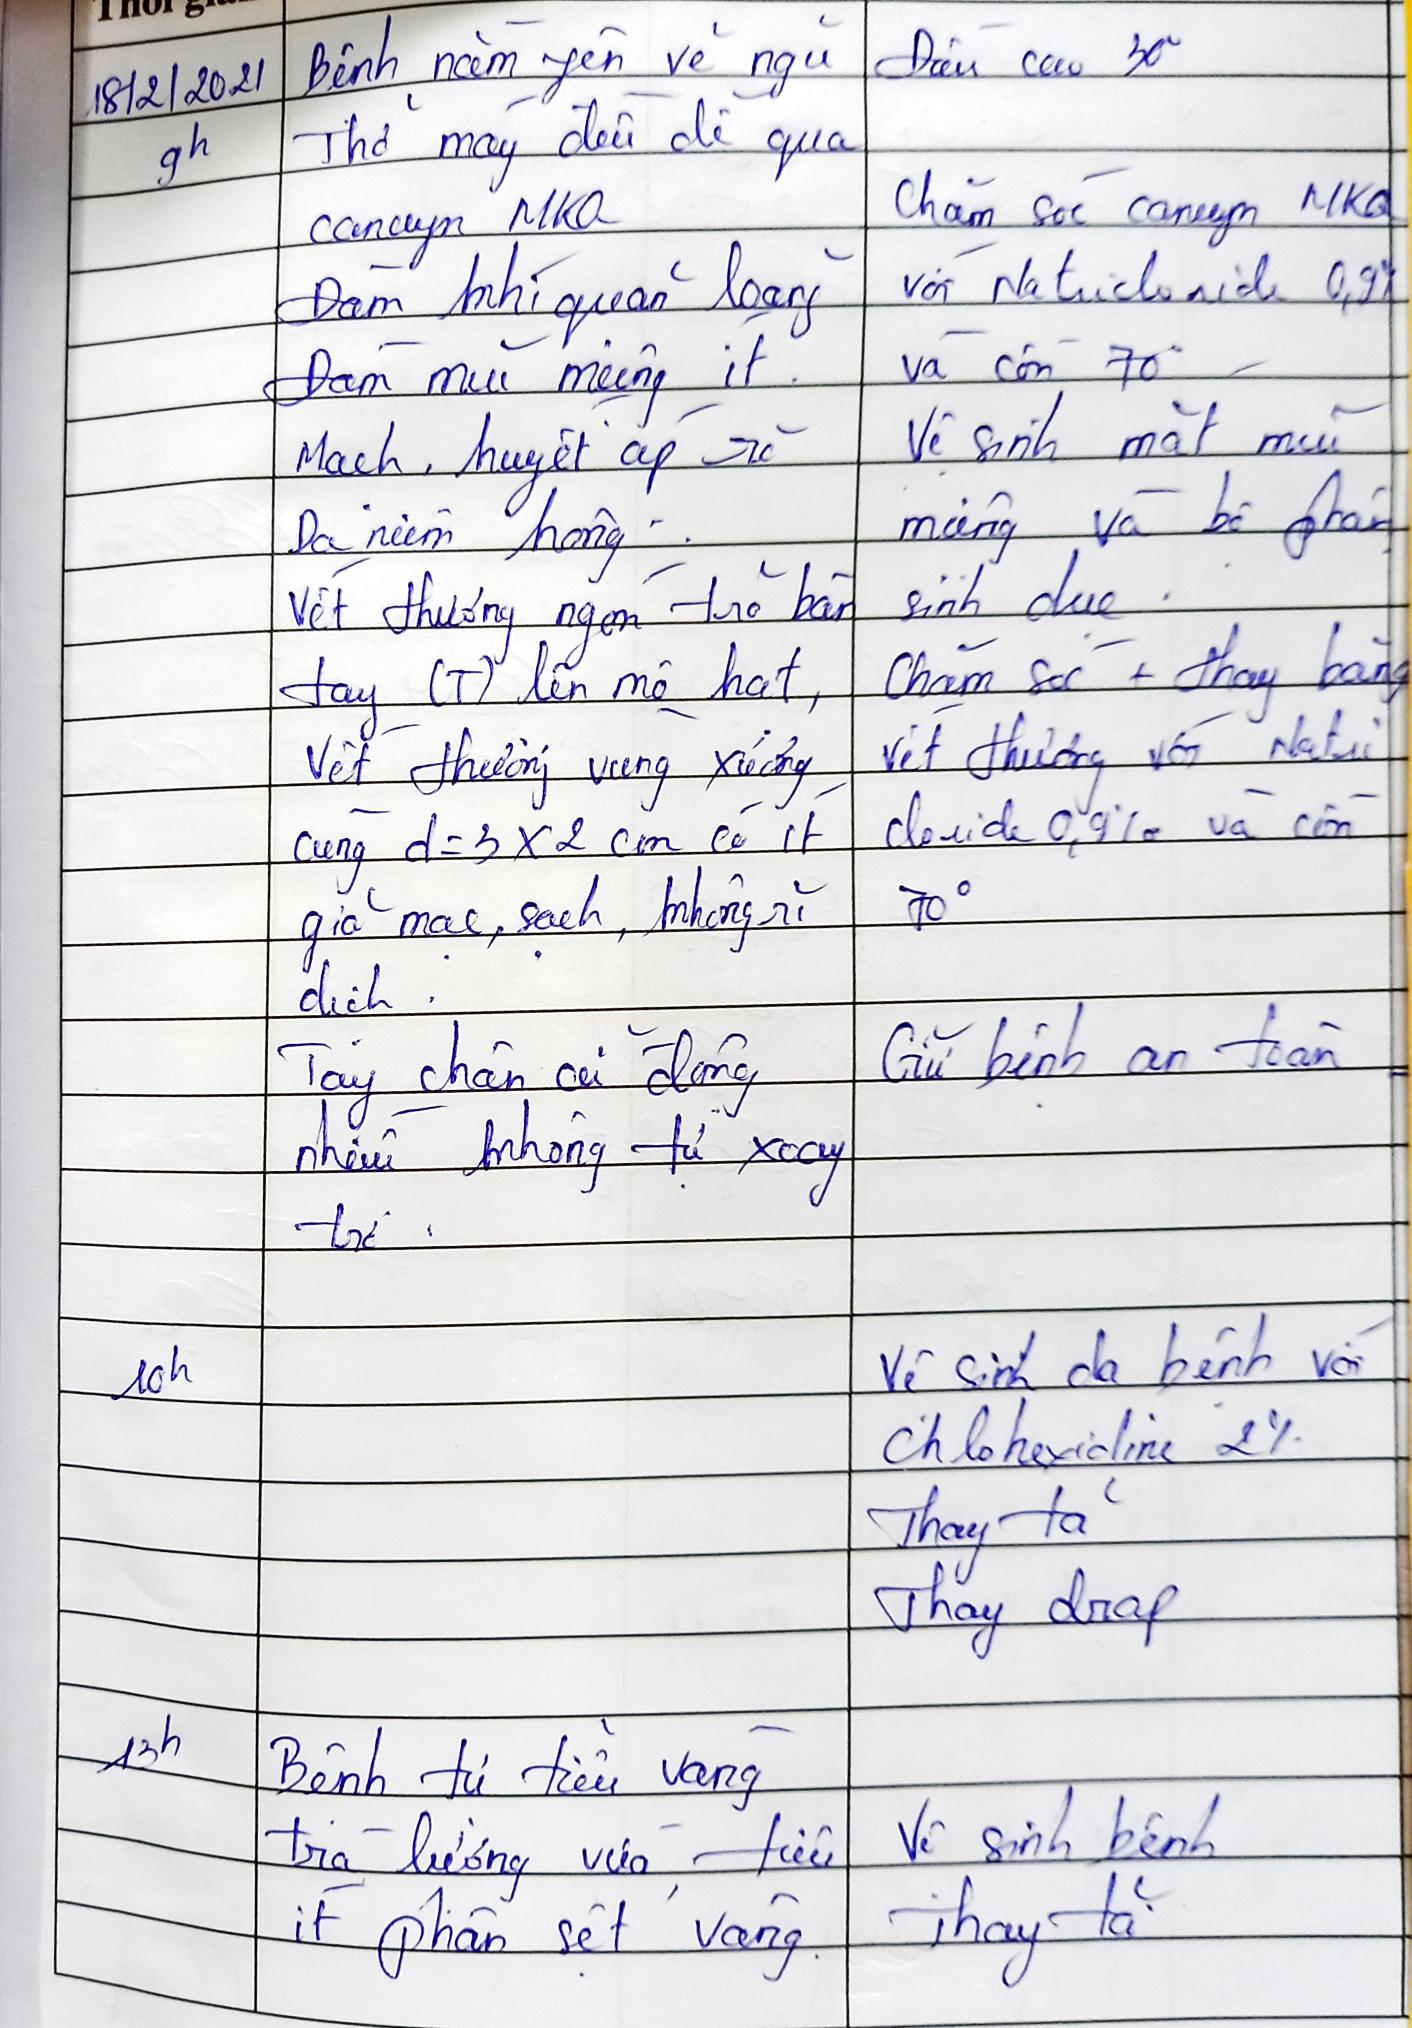 Thời gian
18/2/2021
9h
Bệnh nằm yên vẻ ngủ
Thở máy đều dễ qua
canuyn MKQ
Đàm khí quản loãng
Đàm mũi miệng ít.
Mạch, huyết áp rõ
Da niêm hồng.
Vết thương ngón trỏ bàn
tay (T) lên mô hạt,
Vết thương vùng xương
cùng d=3x2 cm có ít
giả mạc, sạch, không rỉ
dịch.
Tay chân cử động
nhiều không tự xoay
trở.
Đầu cao 30°
Chăm sóc canuyn MKQ
với Natricloride 0,9%
và cồn 70°
Vệ sinh mắt mũi
miệng và bộ phận
sinh dục.
Chăm sóc + thay băng
vết thương với Natri
cloride 0,9% và cồn
70°
Giữ bệnh an toàn
10h
Vệ sinh da bệnh với
Chlohexidine 2%
Thay tả
Thay drap
13h
Bệnh tự tiểu vàng
trà lượng vừa, tiêu
ít phân sệt vàng.
Vệ sinh bệnh
Thay tả